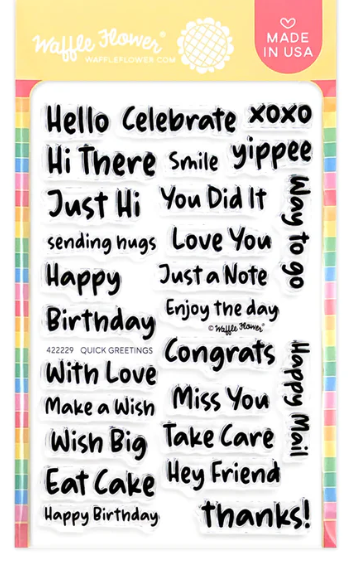 Waffle Flower®
WAFFLEFLOWER.COM
MADE
IN USA
Hello
Celebrate
xoxo
Hi There
Smile
yippee
Just Hi
You Did It
Way to go
sending hugs
Love You
Happy
Just a Note
Birthday
Enjoy the day
© Waffle Flower®
422229 QUICK GREETINGS
Congrats
Happy Mail
With Love
Miss You
Make a Wish
Take Care
Wish Big
Hey Friend
Eat Cake
Happy Birthday
thanks!